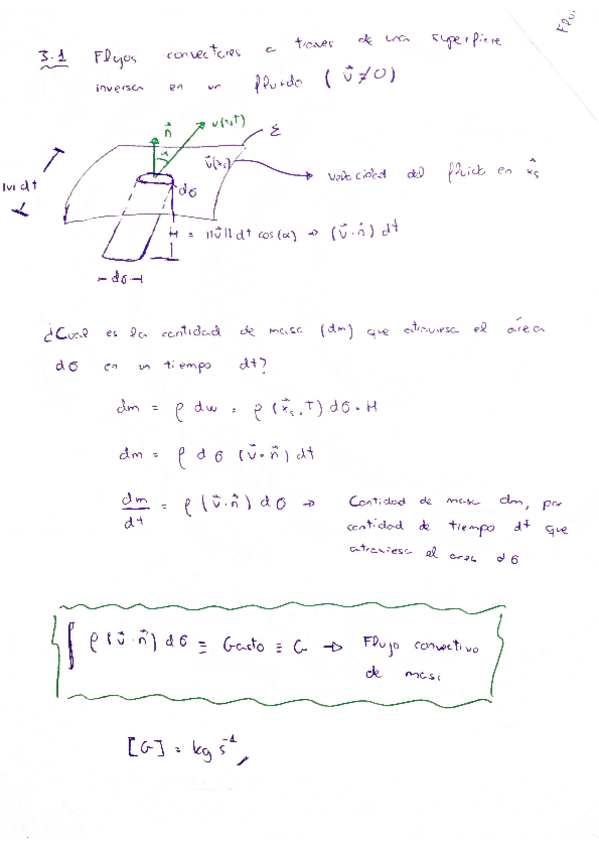 Flui
3.1 Flujos convectores a traves de una superfiere
inversa en un fluido ( v⃗ ≠ 0 )
n⃗ v(x,t) Σ
α v⃗(xs)
|v| dt dσ velocidad del fluido en x⃗s
H = ||v⃗|| dt cos(α) → (v⃗·n⃗) dt
dσ
¿Cual es la cantidad de masa (dm) que atraviesa el área
dσ en un tiempo dt?
dm = ρ dw = ρ (x⃗s, T) dσ · H
dm = ρ dσ (v⃗·n⃗) dt
dm/dt = ρ (v⃗·n⃗) dσ → Cantidad de masa dm, por
cantidad de tiempo dt que
atraviesa el area dσ
∫ ρ (v⃗·n⃗) dσ ≡ Gasto ≡ G → Flujo convectivo
de masa
[G] = kg s⁻¹,